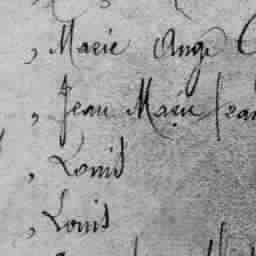 , Marie Ange
, Jean Marie
, Louis
, Louis